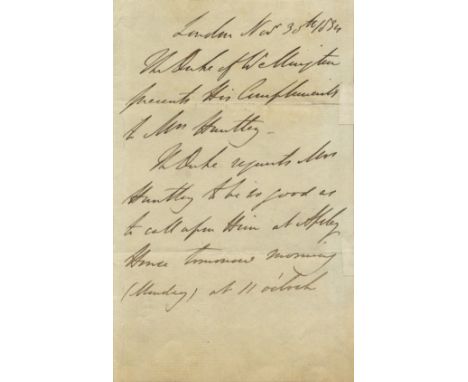 London Nov 30th 1834
The Duke of Wellington
presents His Compliments
to Mrs Huntley.
The Duke requests Mrs
Huntley to be so good as
to call upon Him at Apsley
House tomorrow morning
(Monday) at 11 o'clock